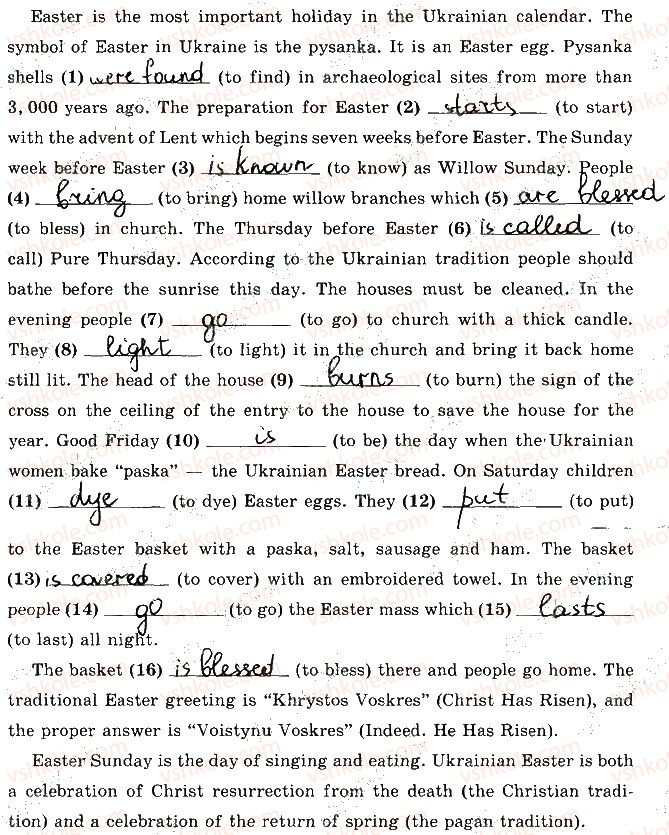 Easter is the most important holiday in the Ukrainian calendar. The
symbol of Easter in Ukraine is the pysanka. It is an Easter egg. Pysanka
shells (1) were found (to find) in archaeological sites from more than
3,000 years ago. The preparation for Easter (2) starts (to start)
with the advent of Lent which begins seven weeks before Easter. The Sunday
week before Easter (3) is known (to know) as Willow Sunday. People
(4) bring (to bring) home willow branches which (5) are blessed
(to bless) in church. The Thursday before Easter (6) is called (to
call) Pure Thursday. According to the Ukrainian tradition people should
bathe before the sunrise this day. The houses must be cleaned. In the
evening people (7) go (to go) to church with a thick candle.
They (8) light (to light) it in the church and bring it back home
still lit. The head of the house (9) burns (to burn) the sign of the
cross on the ceiling of the entry to the house to save the house for the
year. Good Friday (10) is (to be) the day when the Ukrainian
women bake “paska” — the Ukrainian Easter bread. On Saturday children
(11) dye (to dye) Easter eggs. They (12) put (to put)
to the Easter basket with a paska, salt, sausage and ham. The basket
(13) is covered (to cover) with an embroidered towel. In the evening
people (14) go (to go) the Easter mass which (15) lasts
(to last) all night.
The basket (16) is blessed (to bless) there and people go home. The
traditional Easter greeting is “Khrystos Voskres” (Christ Has Risen), and
the proper answer is “Voistynu Voskres” (Indeed. He Has Risen).
Easter Sunday is the day of singing and eating. Ukrainian Easter is both
a celebration of Christ resurrection from the death (the Christian tradi-
tion) and a celebration of the return of spring (the pagan tradition).